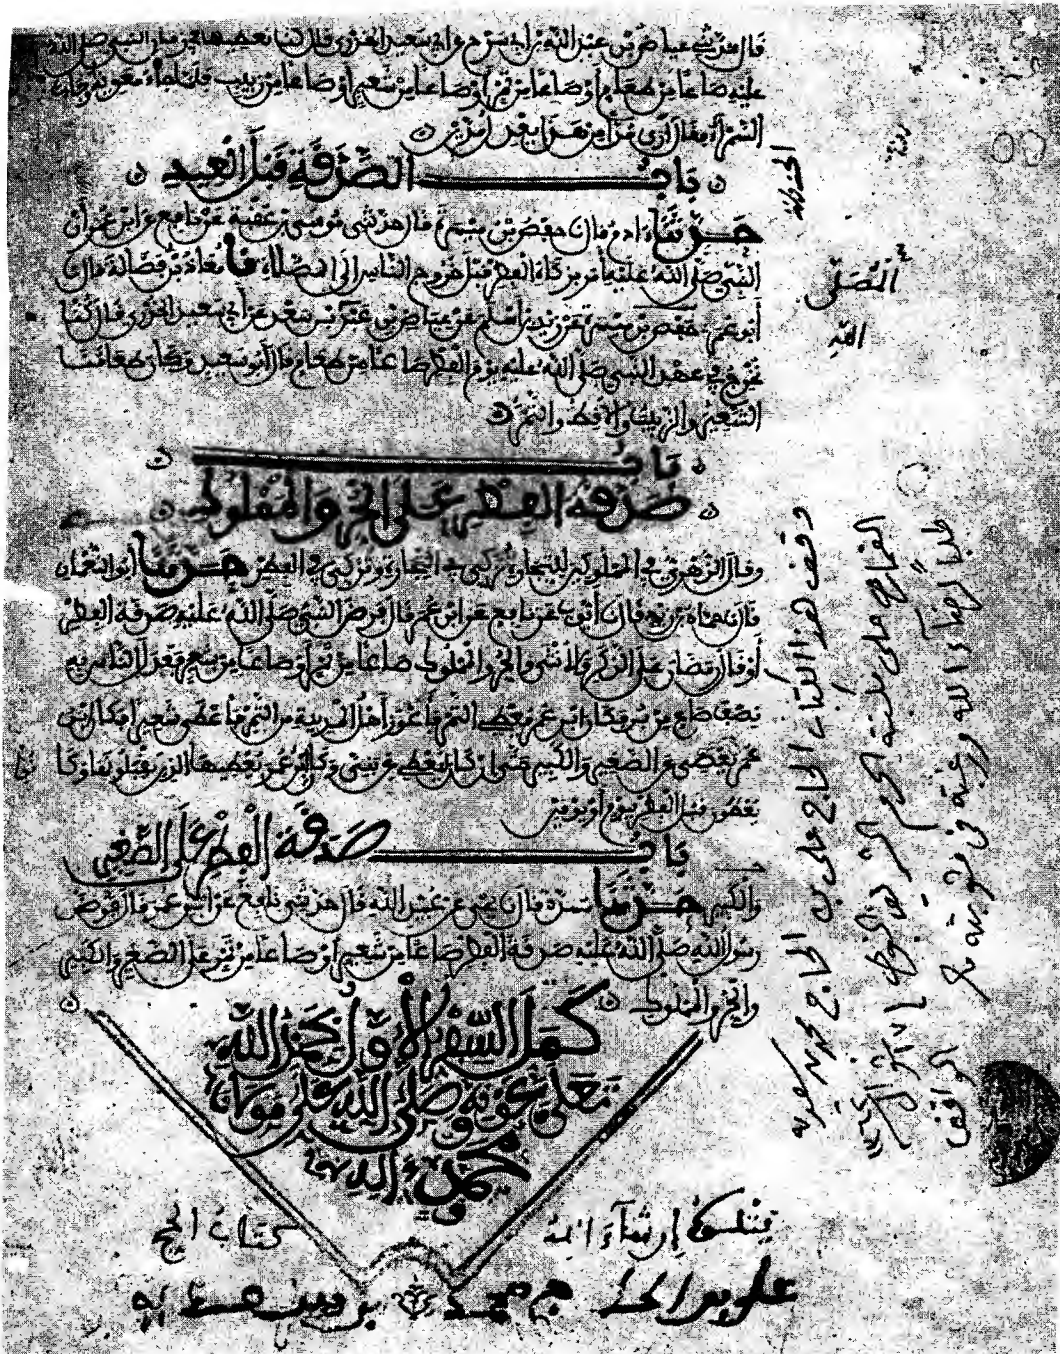 قال حدثني عياض بن عبد الله بن أبي سرح عن أبي سعيد الخدري قال كنا نعطيها في زمان النبي صلى الله
عليه صاعا من طعام أو صاعا من تمر أو صاعا من شعير أو صاعا من زبيب فلما جاء معوية وجاءت
السمراء قال أرى مدا من هذا يعدل مدين
باب الصدقة قبل العيد
حدثنا ءادم قال ن حفص بن ميسرة قال حدثني موسى بن عقبة عن نافع عن ابن عمر أن
النبي صلى الله عليه أمر بزكاة الفطر قبل خروج الناس إلى الصلاة نا معاذ بن فضالة قال ن
أبو عمر حفص بن ميسرة عن زيد بن أسلم عن عياض بن عبد الله بن سعد عن أبي سعيد الخدري قال كنا
نخرج في عهد النبي صلى الله عليه يوم الفطر صاعا من طعام قال أبو سعيد وكان طعامنا
الشعير والزبيب والأقط والتمر
باب
صدقة الفطر على الحر والمملوك
وقال الزهري في المملوكين للتجارة يزكى في التجارة ويزكى في الفطر حدثنا أبو النعمان
قال ن حماد بن زيد قال ن أيوب عن نافع عن ابن عمر قال فرض النبي صلى الله عليه صدقة الفطر
أو قال رمضان على الذكر والأنثى والحر والمملوك صاعا من تمر أو صاعا من شعير فعدل الناس به
نصف صاع من بر فكان ابن عمر يعطي التمر فأعوز أهل المدينة من التمر فأعطى شعيرا فكان ابن
عمر يعطي عن الصغير والكبير حتى إن كان يعطي عن بني وكان ابن عمر يعطيها الذين يقبلونها وكانوا
يعطون قبل الفطر بيوم أو يومين
باب صدقة الفطر على الصغير
والكبير حدثنا مسدد قال ن يحيى عن عبيد الله قال حدثني نافع عن ابن عمر قال فرض
رسول الله صلى الله عليه صدقة الفطر صاعا من شعير أو صاعا من تمر على الصغير والكبير
والحر والمملوك
كمل السفر الأول بحمد الله
تعلى وعونه وصلى الله على مولنا
محمد وءاله
يتلوه إن شاء الله
كتاب الحج
الحمد لله
المصلى
وقف هذا الكتاب الحاج علي بن الحاج محمد
طلبا لرضاء الله ورغبة في ثوابه
الواقف